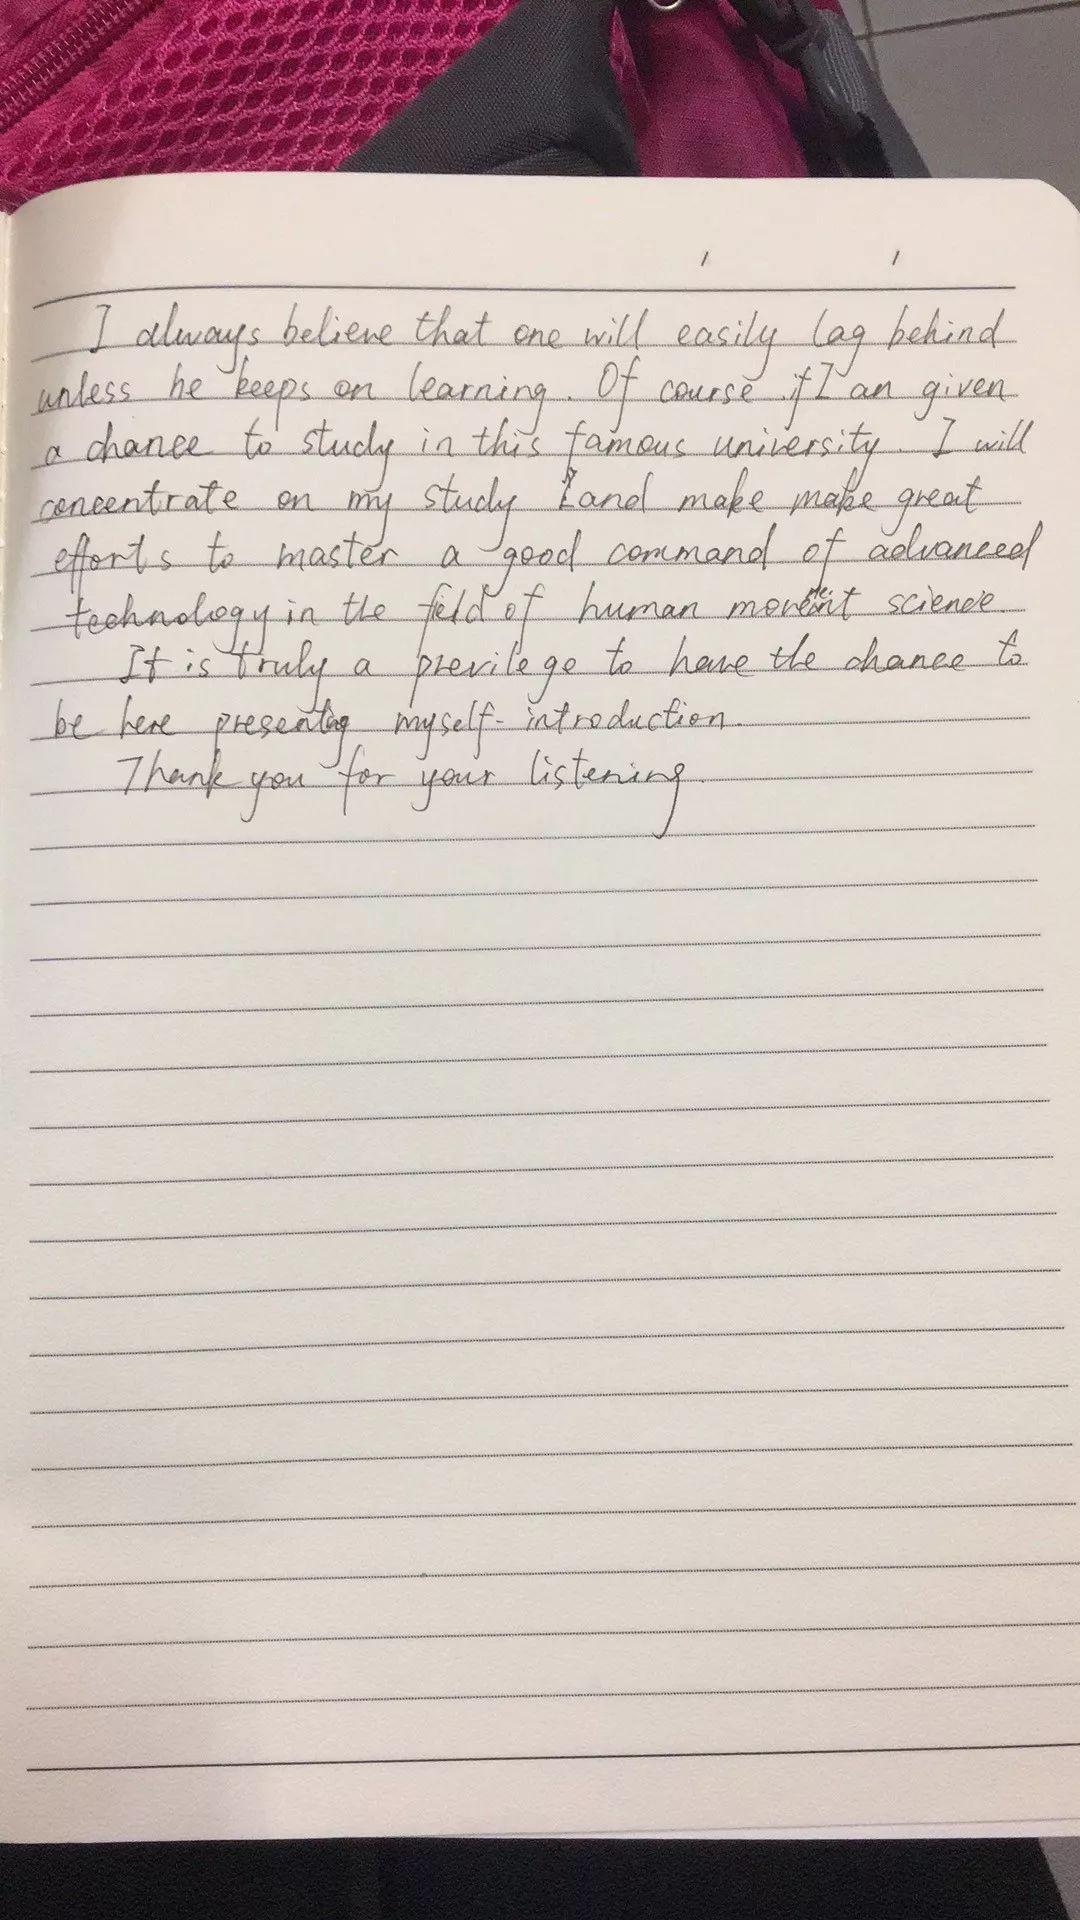 I always believe that one will easily lag behind
unless he keeps on learning. Of course if I an given
a chance to study in this famous university. I will
concentrate on my study and make make great
efforts to master a good command of advanced
technology in the field of human movement science.
It is truly a previlege to have the chance to
be here presenting myself-introduction.
Thank you for your listening.